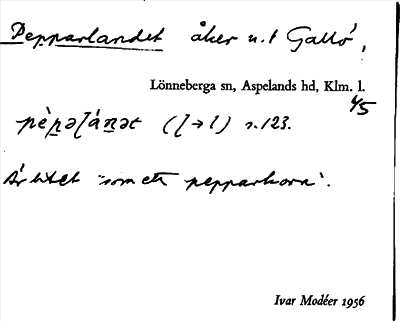 Pepparlandet åker u.t Gallö,
Lönneberga sn, Aspelands hd, Klm. l.
4/5
pèp̱əɭáṉət (ɭ→l) s. 123.
Är litet "som ett pepparkorn".
Ivar Modéer 1956